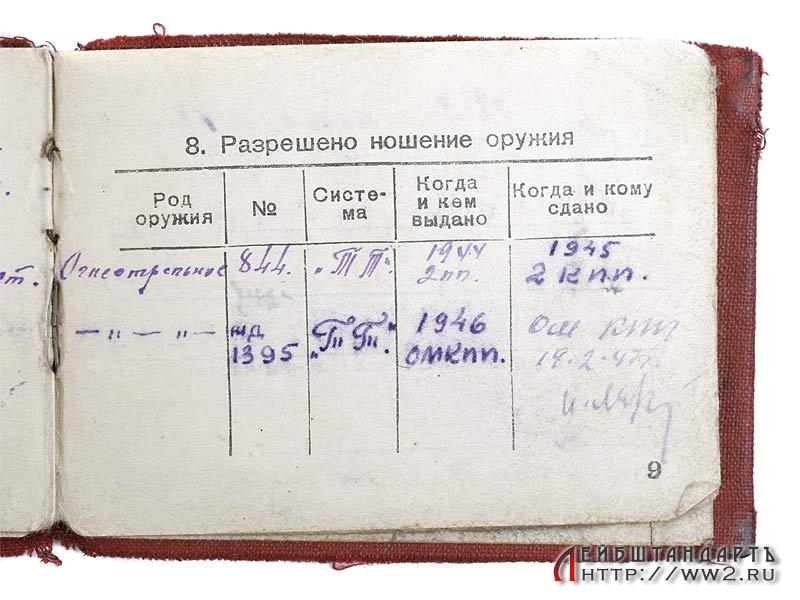 8. Разрешено ношение оружия
Род оружия
№
Систе-
ма
Когда и кем выдано
Когда и кому сдано
от. Огнестрельное 844. „ТТ“ 1944 2пп. 1945 2 кпп.
— „ — „ — шд 1395 „ТТ“ 1946 ОМКПП. Ом КПП 19.2.47г.
9
ЛЕЙБШТАНДАРТЪ
HTTP://WW2.RU